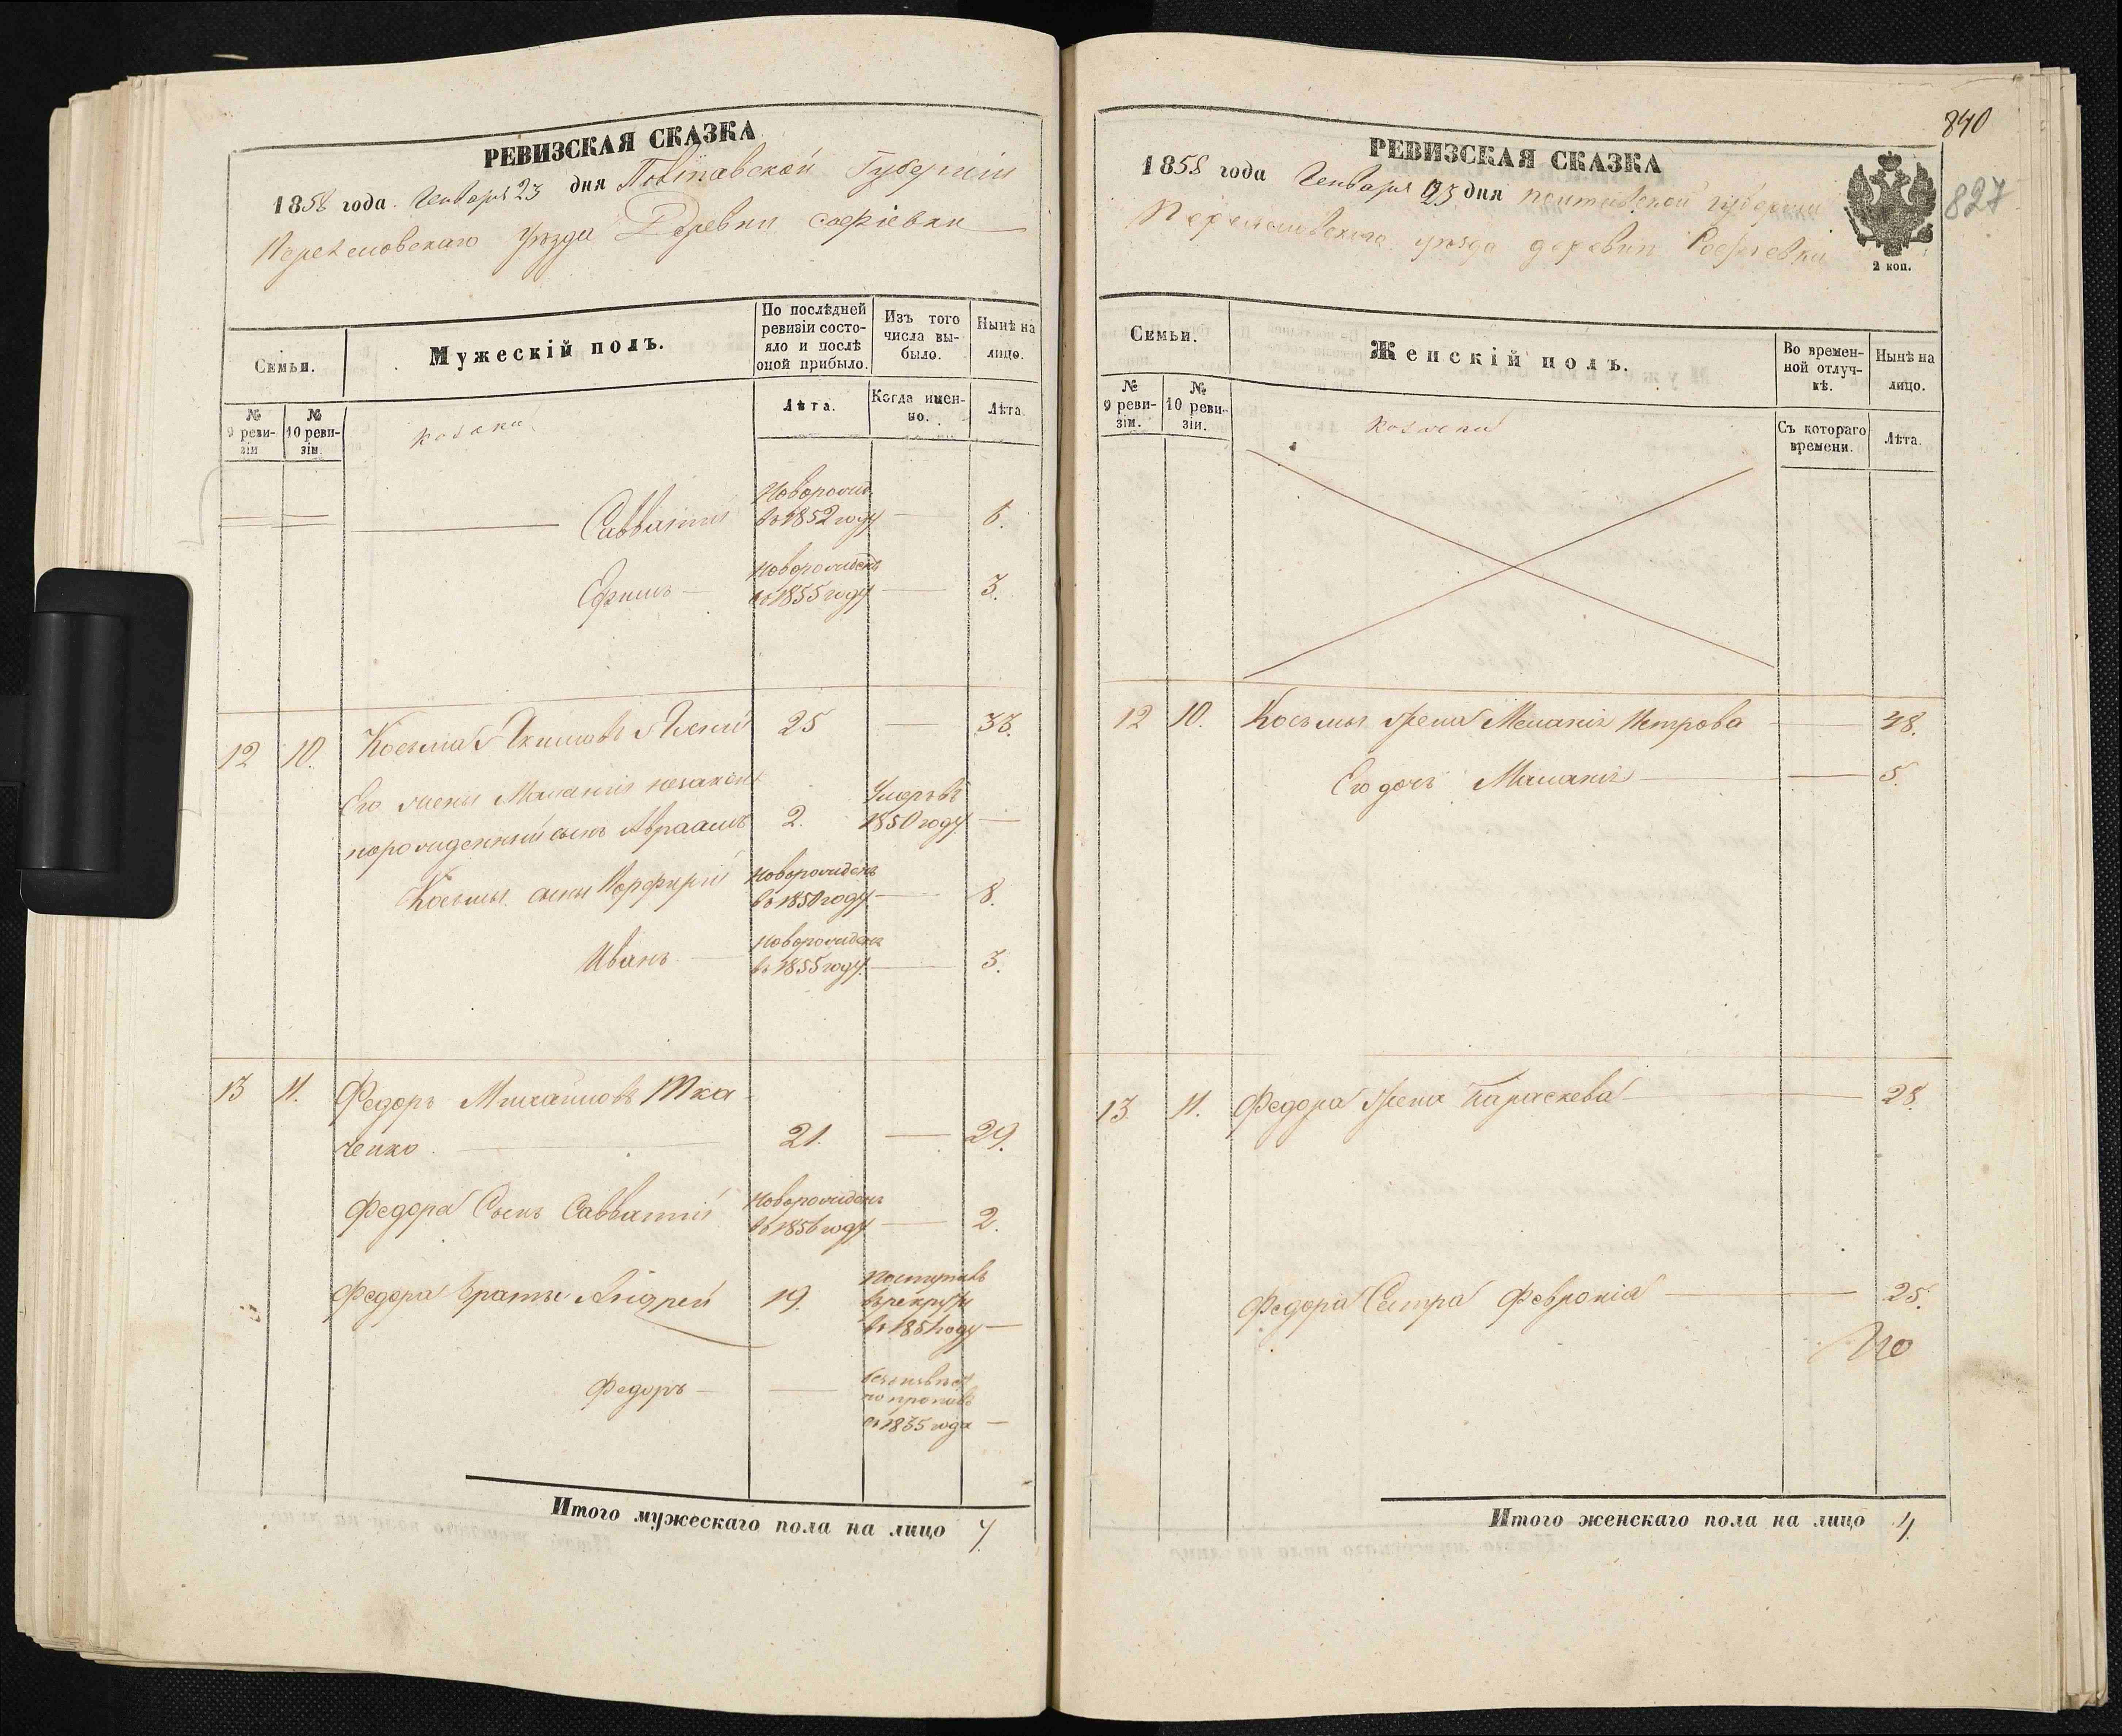 РЕВИЗСКАЯ СКАЗКА
1858 года Генваря 23 дня Полтавской Губернии
Переяславскаго Уезда Деревни Софіевки
Семьи.
Мужескій полъ.
По послѣдней ревизіи состо-
яло и послѣ
оной прибыло.
Изъ того
числа вы-
было.
Нынѣ на
лицо.
№
9 реви-
зіи
№
10 реви-
зіи.
козаки
Лѣта.
Когда имен-
но.
Лѣта.
Савватій
Новорожд.
въ 1852 году
6.
Ефимъ
Новорожденъ
въ 1855 году
3.
12 10. Козьма Якимовъ 25 33.
Его жены Маланіи незакон
норожденный сынъ Авраамъ 2. Умеръ въ
1850 году
Козьмы сыны Порфирій
Новорожденъ
въ 1850 году
8.
Иванъ
Новорожденъ
въ 1855 году
3.
13 11. Федоръ Михайловъ Тка-
ченко 21. 29.
Федора Сынъ Савватій
Новорожденъ
въ 1856 году
2.
Федора Браты Андрей 19.
Поступилъ
въ рекруты
въ 1851 году
Федоръ
безъ извѣст
но пропалъ
съ 1835 года
Итого мужескаго пола на лицо 7.
840
827
РЕВИЗСКАЯ СКАЗКА
1858 года Генваря 23 дня Полтавской губернии
Переяславскаго уезда деревни Софіевки
2 коп.
Семьи.
Женскій полъ.
Во времен-
ной отлуч-
кѣ.
Нынѣ на
лицо.
№
9 реви-
зіи.
№
10 реви-
зіи.
Съ котораго
времени.
Лѣта.
12 10. Козьмы жена Меланія Петрова 48.
Его дочь Маланія 5.
13 11. Федора жена Параскева 28.
Федора Сестра Февронія 25.
Итого женскаго пола на лицо 4.